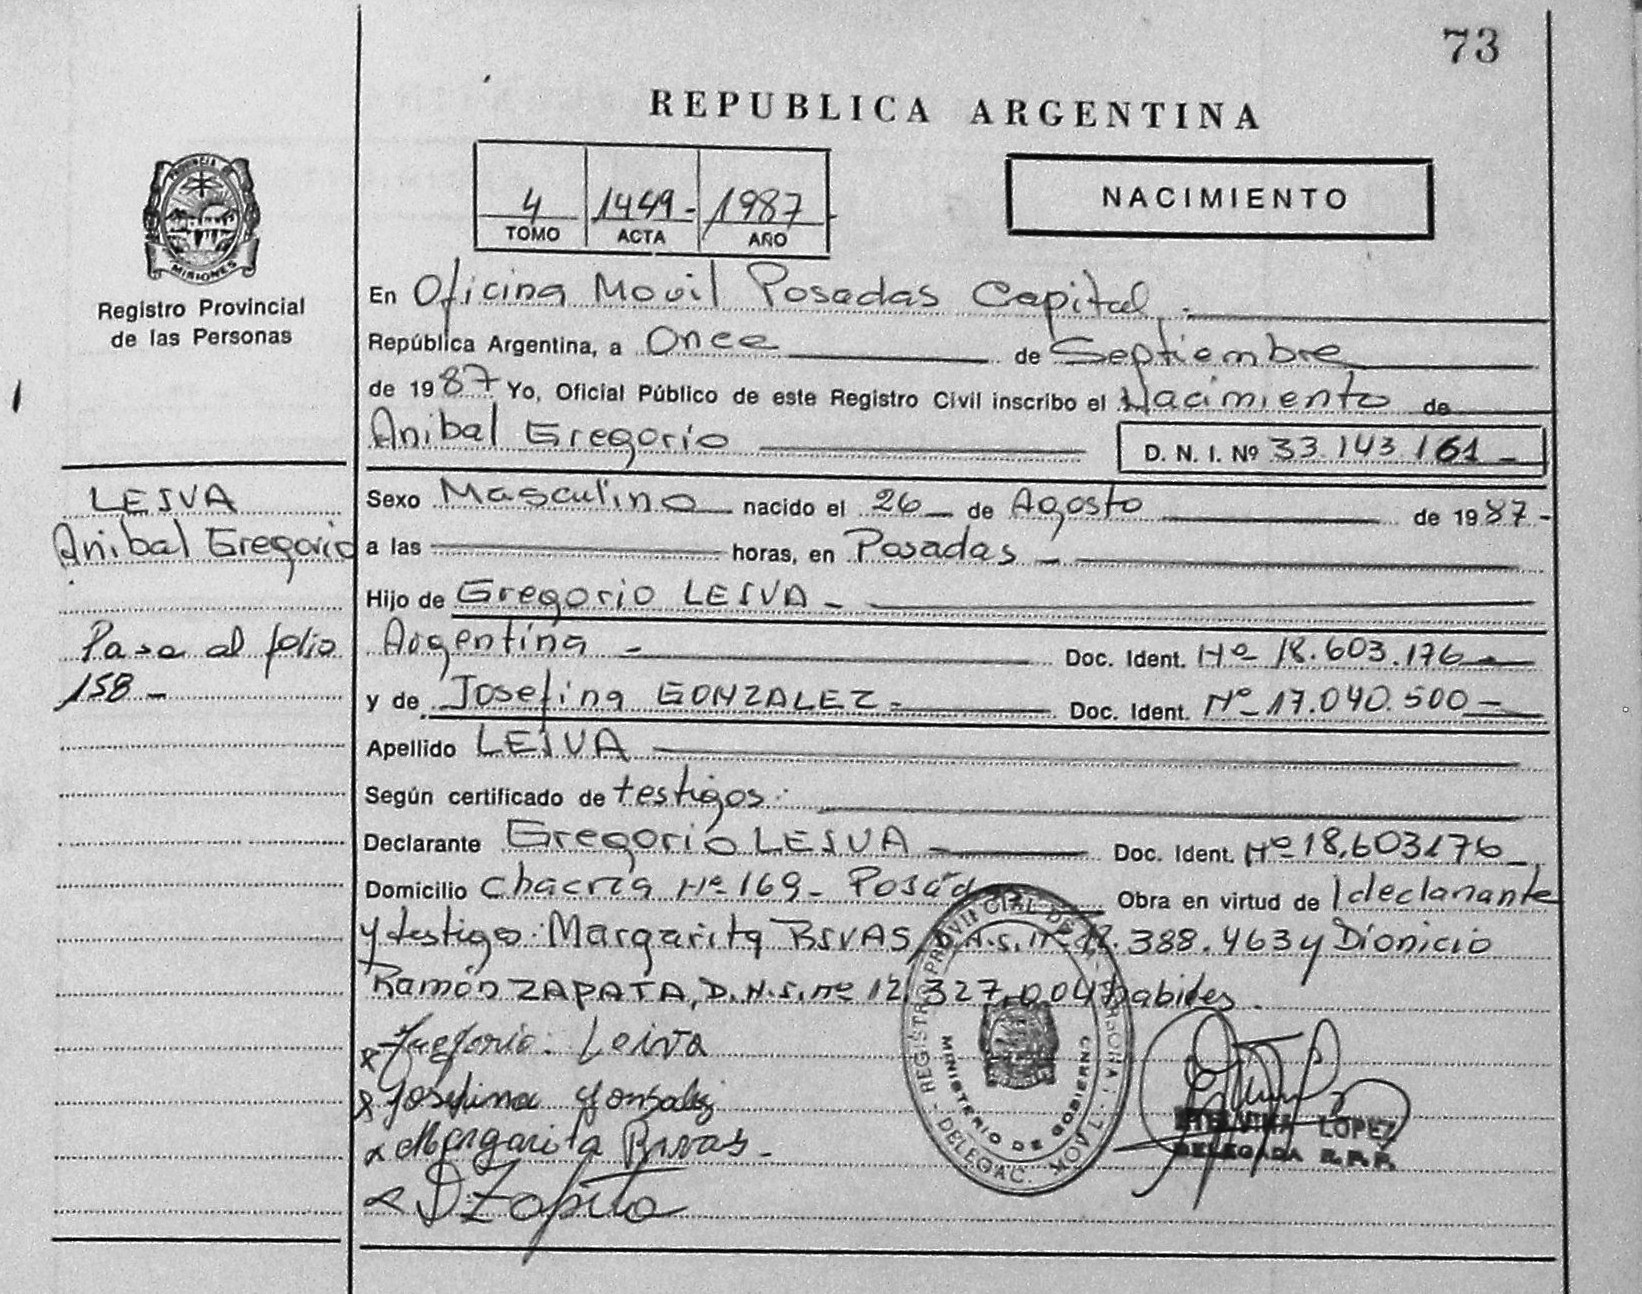 73
REPUBLICA ARGENTINA
4 1449- 1987-
TOMO ACTA AÑO
NACIMIENTO
PROVINCIA DE MISIONES
Registro Provincial
de las Personas
En Oficina Movil Posadas Capital.
República Argentina, a Once de Septiembre
de 1987 Yo, Oficial Público de este Registro Civil inscribo el Nacimiento de
Anibal Gregorio D. N. I. Nº 33.143.161-
LEIVA
Anibal Gregorio
Pasa al folio
158-
Sexo Masculino nacido el 26 de Agosto de 1987-
a las horas, en Posadas-
Hijo de Gregorio LEIVA-
Argentina - Doc. Ident. Nº 18.603.176-
y de Josefina GONZALEZ- Doc. Ident. Nº 17.040.500-
Apellido LEIVA
Según certificado de testigos:
Declarante Gregorio LEIVA - Doc. Ident. Nº 18.603176-
Domicilio Chacra Nº 169- Posadas Obra en virtud de declarante
y testigo: Margarita BIVAS, D.N.I. nº 388.463 y Dionicio
Ramón ZAPATA, D.N.I. nº 12.327.004 habides.
x Gregorio: Leiva
x Josefina Gonzalez
x Margarita Bivas-
x D Zapata
REGISTRO PROVINCIAL DE
MINISTERIO DE GOBIERNO
DELEGAC. MOVIL
LOPEZ
DELEGADA R.P.P.